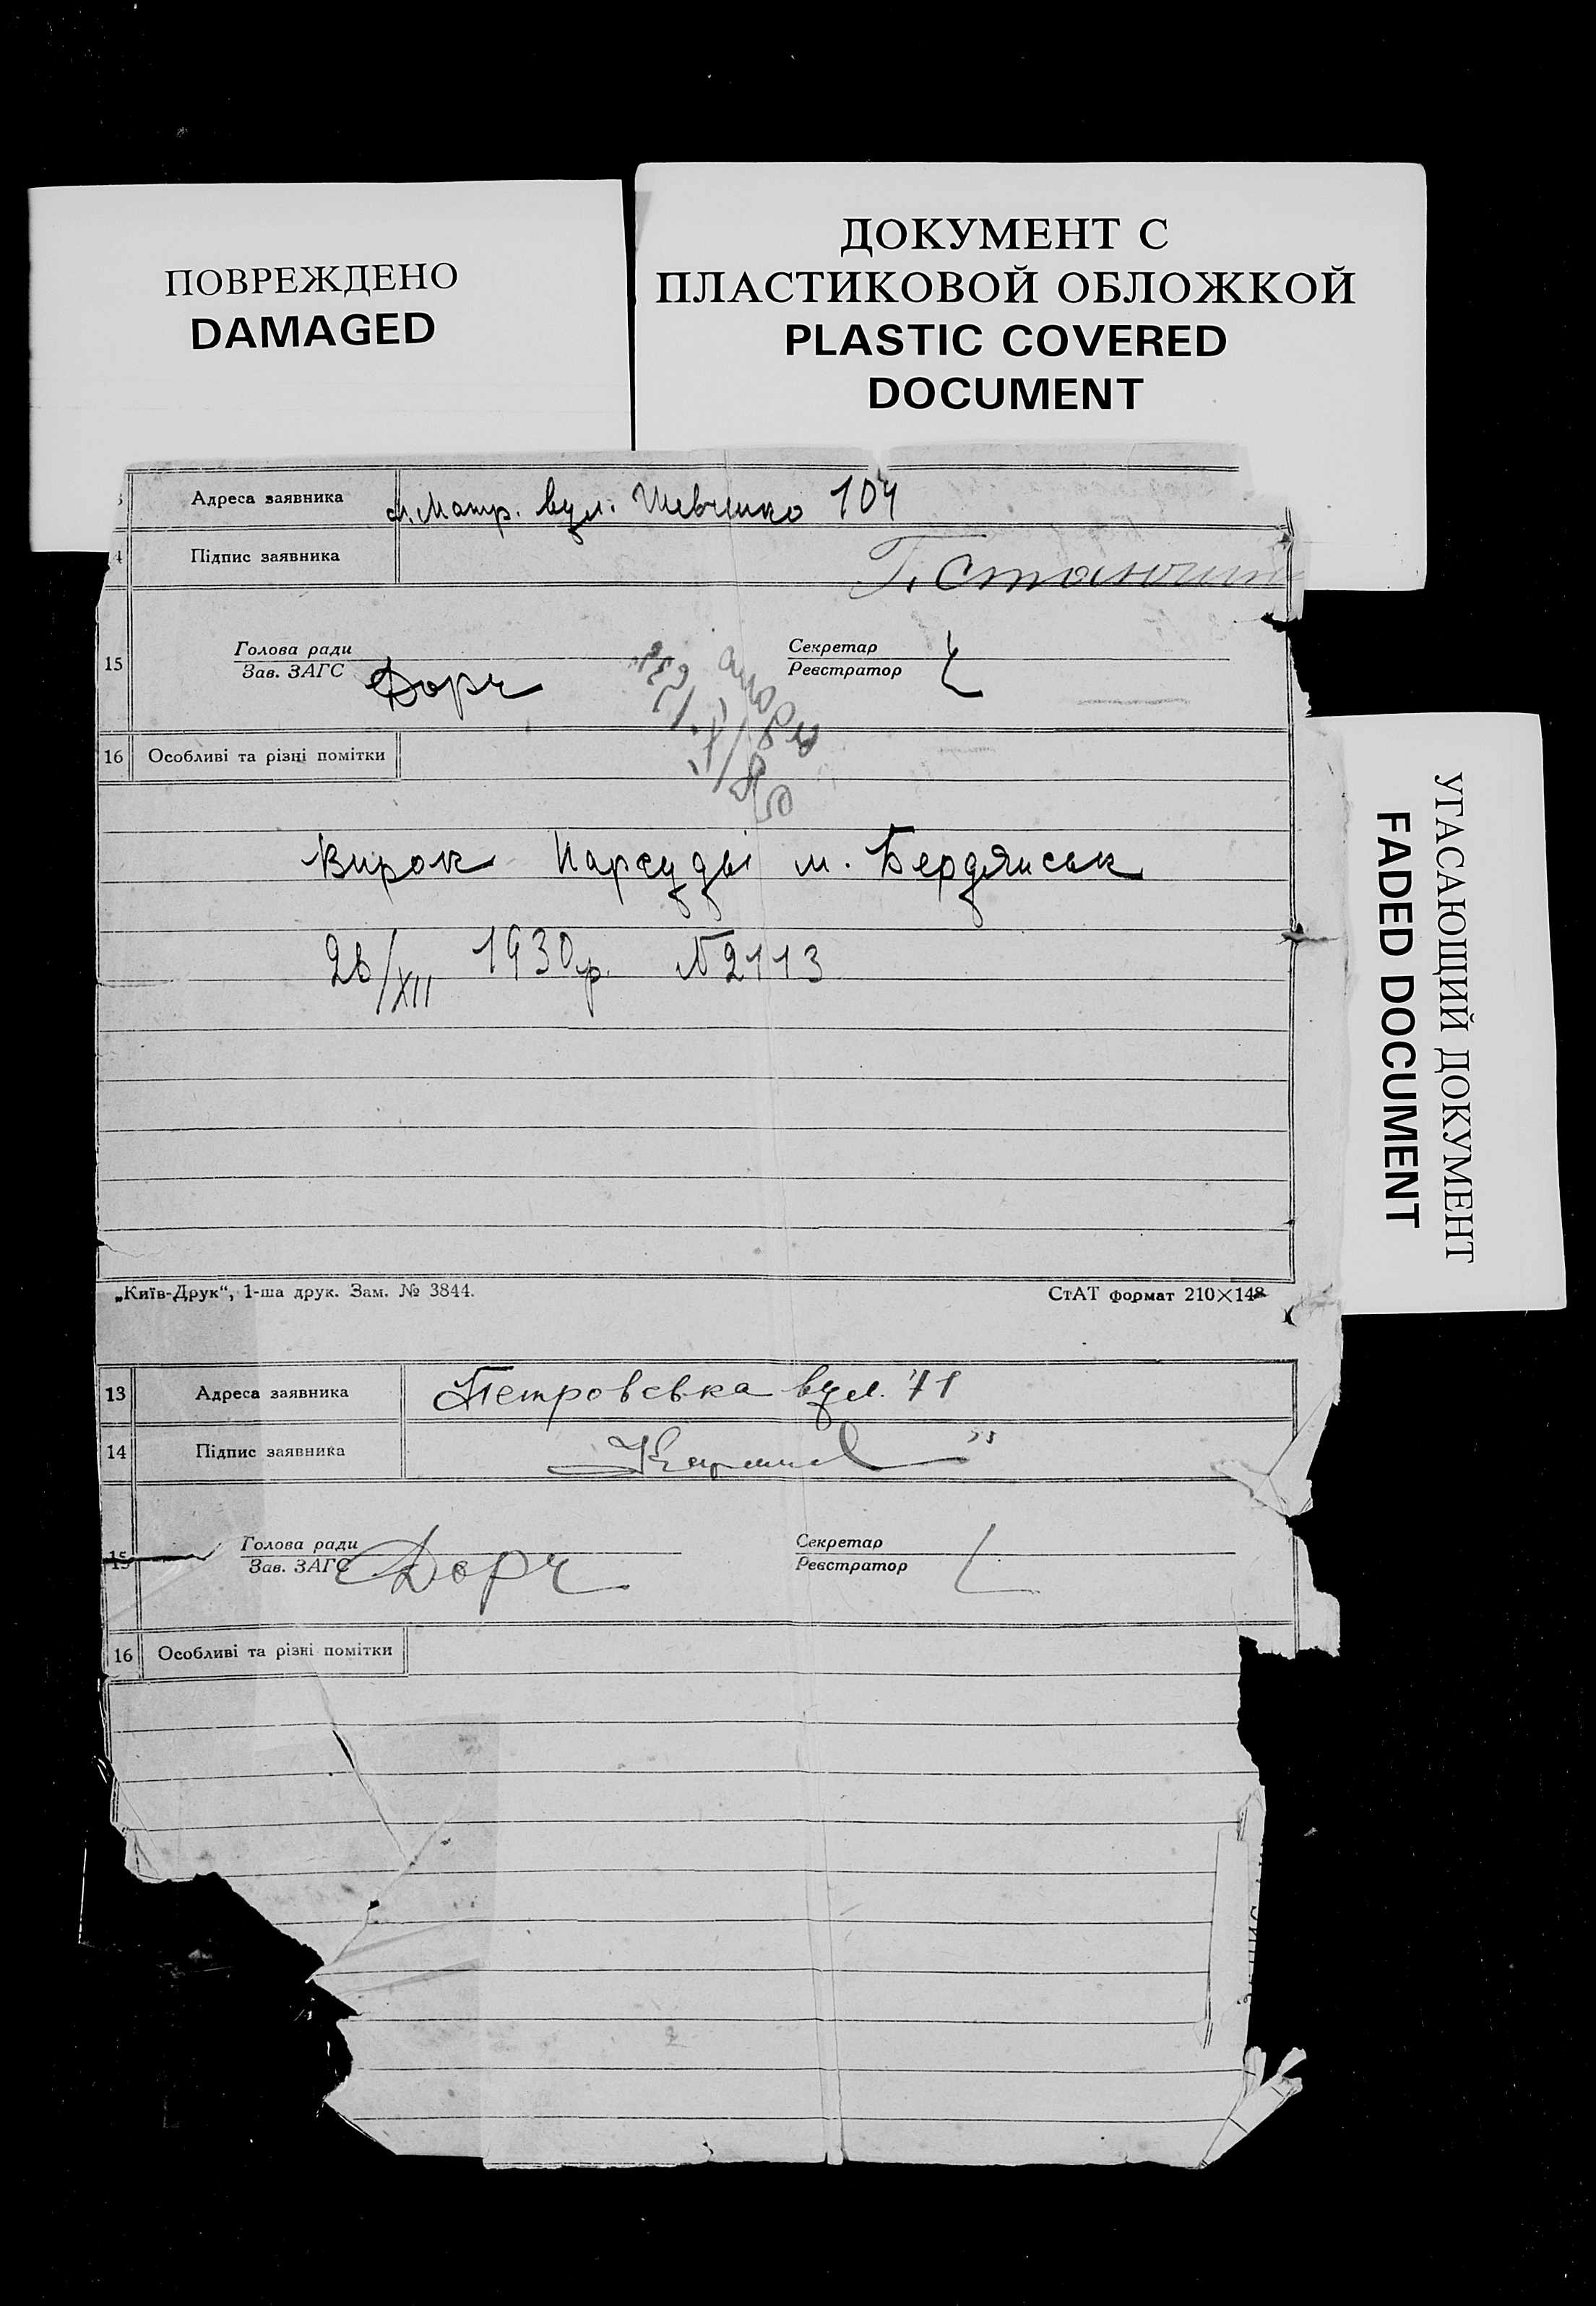 ПОВРЕЖДЕНО
DAMAGED
ДОКУМЕНТ С
ПЛАСТИКОВОЙ ОБЛОЖКОЙ
PLASTIC COVERED
DOCUMENT
Адреса заявника вул. Шевченко 104
Підпис заявника
15 Голова ради
Зав. ЗАГС Дорч
Секретар
Реєстратор
16 Особливі та різні помітки
Вирок Нарсуду м. Бердянськ
26/XII 1930р. №2113
„Київ-Друк“, 1-ша друк. Зам. № 3844.
СтАТ формат 210×148
УГАСАЮЩИЙ ДОКУМЕНТ
FADED DOCUMENT
13 Адреса заявника Петровська вул. 71
14 Підпис заявника
15 Голова ради
Зав. ЗАГС Дорч
Секретар
Реєстратор
16 Особливі та різні помітки